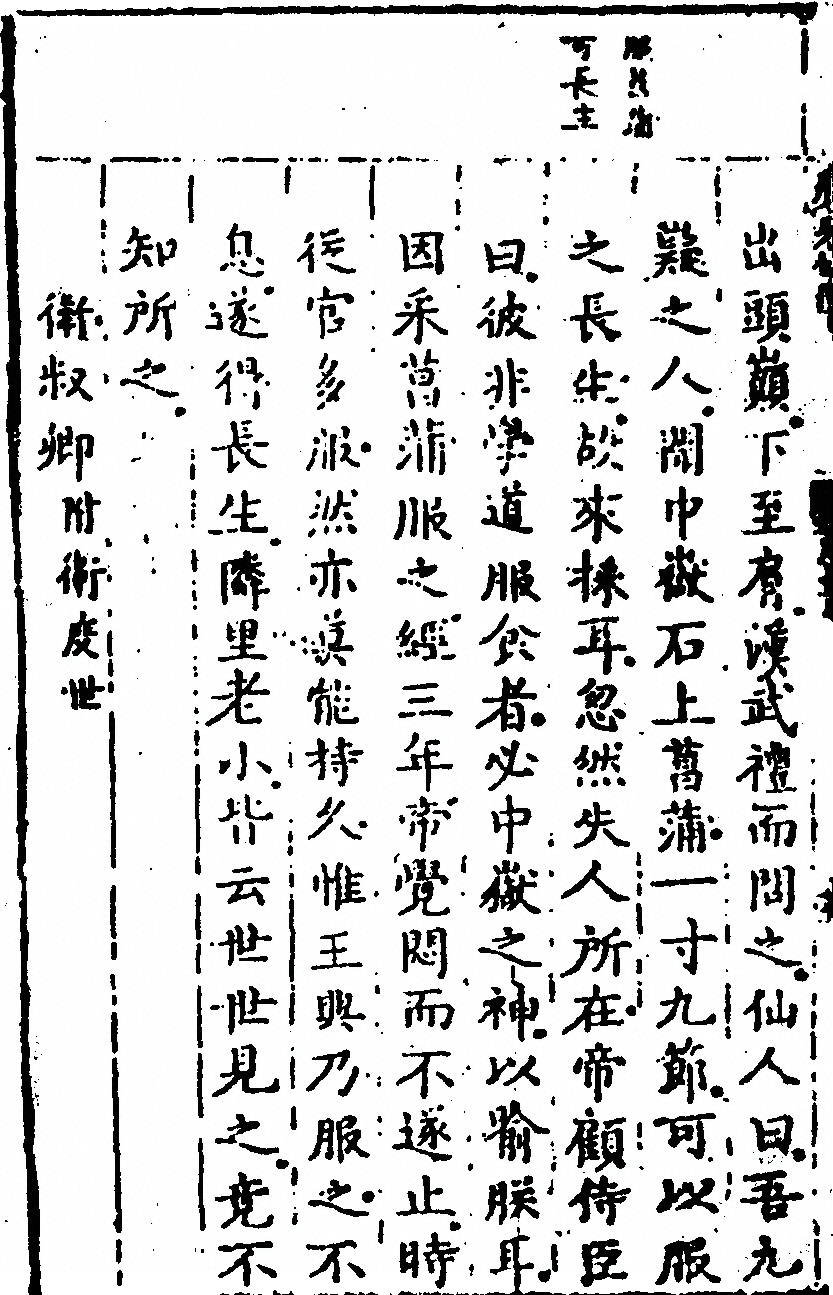 服菖蒲
可長生
出頭巔下至肩漢武禮而問之仙人曰吾九
嶷之人聞中嶽石上菖蒲一寸九節可以服
之長生故來採耳忽然失人所在帝顧侍臣
曰彼非學道服食者必中嶽之神以喻朕耳
因采菖蒲服之經三年帝覺悶而不遂止時
從官多服然亦莫能持久惟王興乃服之不
息遂得長生隣里老小皆云世世見之竟不
知所之
衛叔卿附衛度世